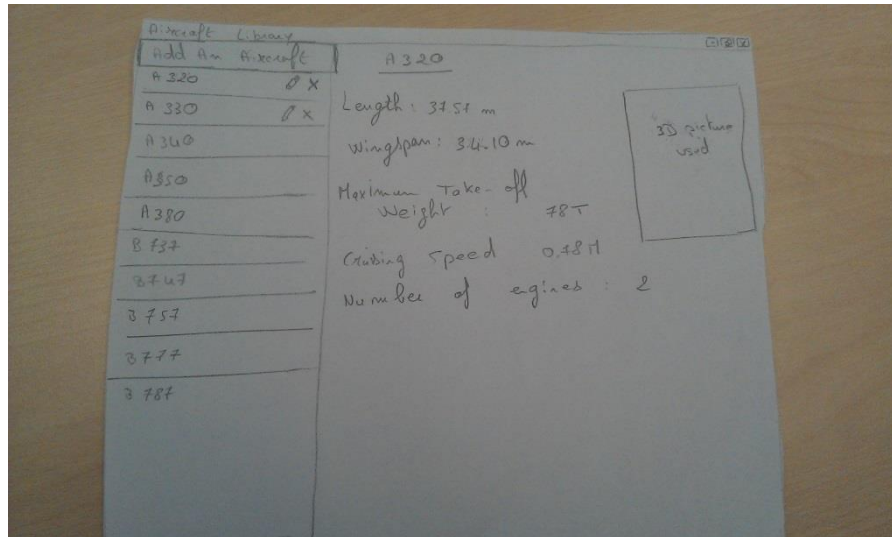 Aircraft Library
Add An Aircraft
A 320
A 330
A 340
A350
A 380
B 737
B747
B 757
B 777
B 787
A320
Length : 37.57 m
Wingspan : 34.10 m
Maximum Take-off
Weight : 78T
Cruising Speed 0.78 M
Number of engines : 2
3D picture
used